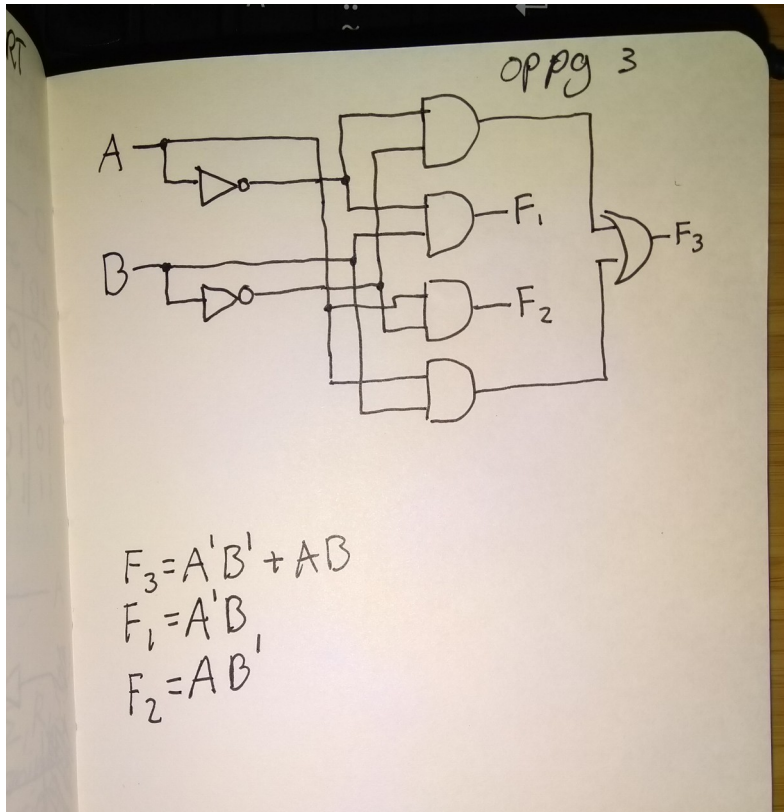 RT
oppg 3
A
F₁
F₃
B
F₂
F₃=A'B'+AB
F₁=A'B
F₂=AB'